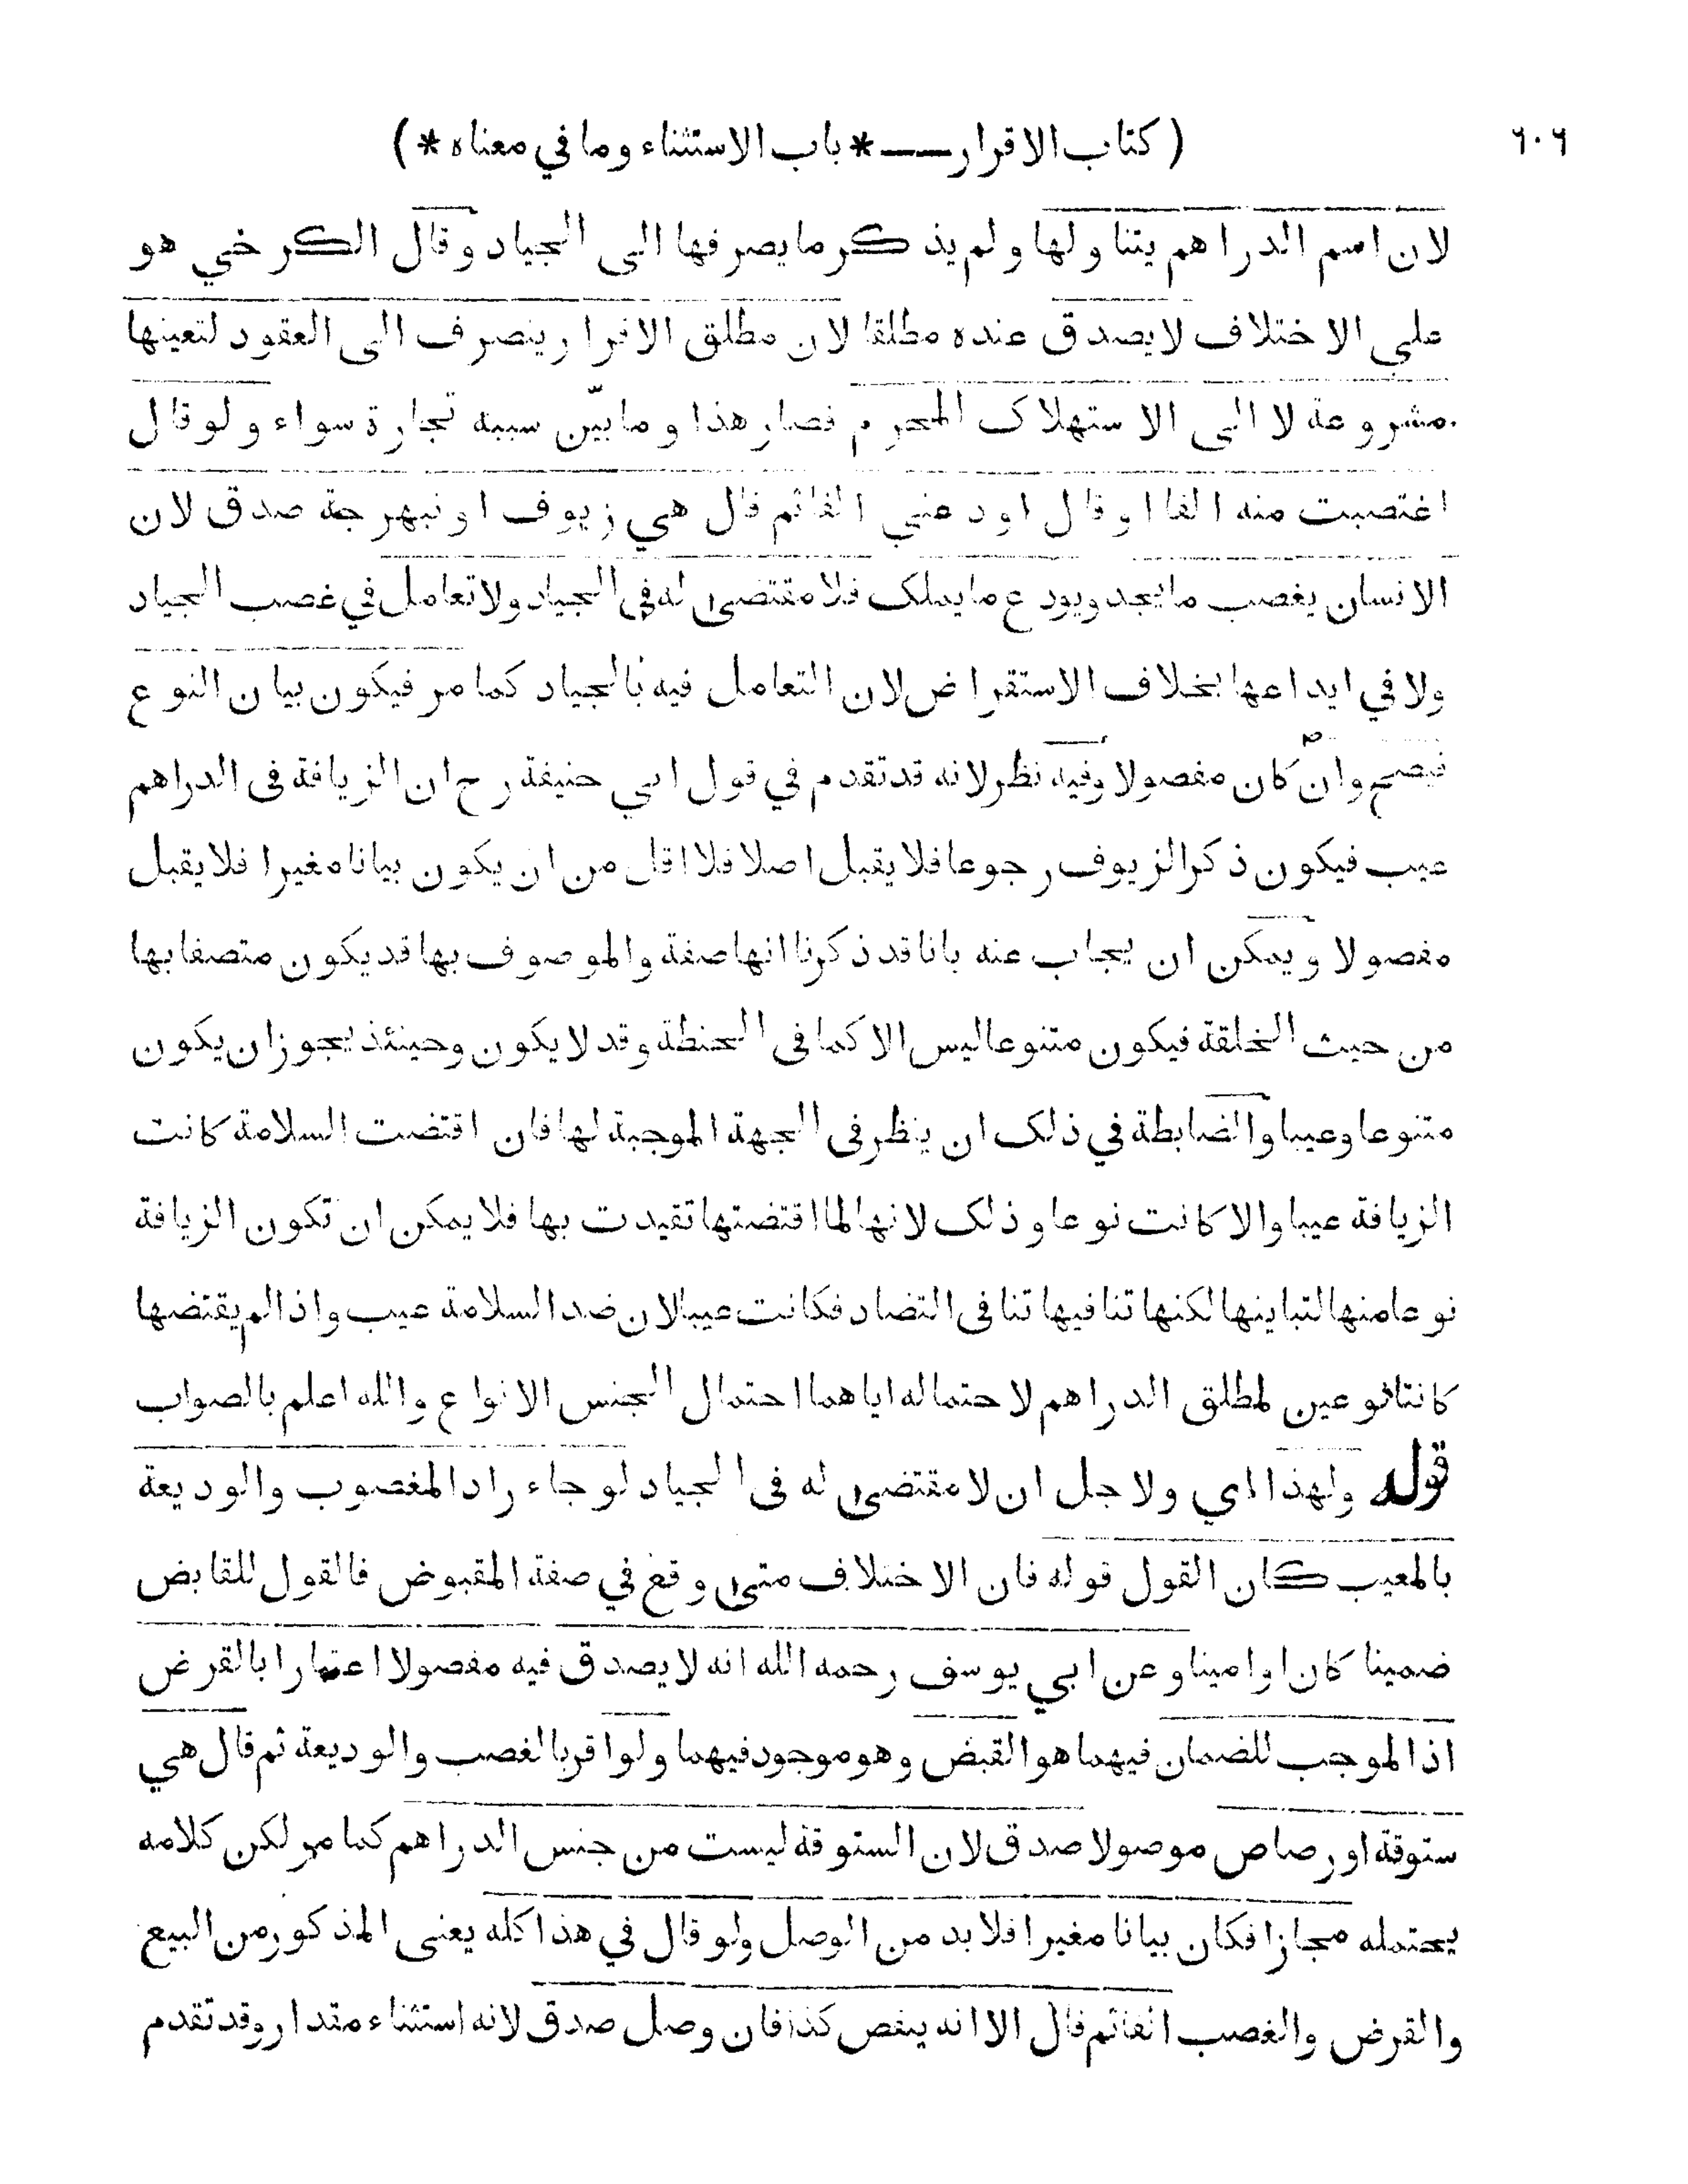 ٦٠٦
( كتاب الاقرار — * باب الاستثناء وما في معناه * )
لان اسم الدراهم يتناولها ولم يذكر ما يصرفها الى الجياد وقال الكرخي هو
على الاختلاف لايصدق عنده مطلقا لان مطلق الاقرار ينصرف الى العقود لتعينها
مشروعة لا الى الاستهلاك المحرم فصار هذا وما بيّن سببه تجارة سواء ولو قال
اغتصبت منه الفا او قال اودعني الفا ثم قال هي زيوف او نبهرجة صدق لان
الانسان يغصب مايجد ويودع مايملك فلا مقتضى له في الجياد ولا تعامل في غصب الجياد
ولا في ايداعها بخلاف الاستقراض لان التعامل فيه بالجياد كما مر فيكون بيان النوع
فيصح وان كان مفصولا وفيه نظر لانه قد تقدم في قول ابي حنيفة رح ان الزيافة في الدراهم
عيب فيكون ذكر الزيوف رجوعا فلا يقبل اصلا فلا اقل من ان يكون بيانا مغيرا فلا يقبل
مفصولا ويمكن ان يجاب عنه بانا قد ذكرنا انها صفة والموصوف بها قد يكون متصفا بها
من حيث الخلقة فيكون متنوعا ليس الا كما في الحنطة وقد لا يكون وحينئذ يجوز ان يكون
متنوعا وعيبا والضابطة في ذلك ان ينظر في الجهة الموجبة لها فان اقتضت السلامة كانت
الزيافة عيبا والا كانت نوعا وذلك لانها لما اقتضتها تقيدت بها فلا يمكن ان تكون الزيافة
نوعا منها لتباينها لكنها تنافيها تنافى التضاد فكانت عيبا لان ضد السلامة عيب واذا لم يقتضها
كانتا نوعين لمطلق الدراهم لاحتماله اياهما احتمال الجنس الانواع والله اعلم بالصواب
قوله ولهذا اي ولاجل ان لا مقتضى له في الجياد لو جاء راد المغصوب والوديعة
بالمعيب كان القول قوله فان الاختلاف متى وقع في صفة المقبوض فالقول للقابض
ضمينا كان او امينا وعن ابي يوسف رحمه الله انه لايصدق فيه مفصولا اعتبارا بالقرض
اذ الموجب للضمان فيهما هو القبض وهو موجود فيهما ولو اقر بالغصب والوديعة ثم قال هي
ستوقة او رصاص موصولا صدق لان الستوقة ليست من جنس الدراهم كما مر لكن كلامه
يحتمله مجازا فكان بيانا مغيرا فلا بد من الوصل ولو قال في هذا كله يعني المذكور من البيع
والقرض والغصب الفا ثم قال الا انه ينقص كذا فان وصل صدق لانه استثناء مقدار وقد تقدم